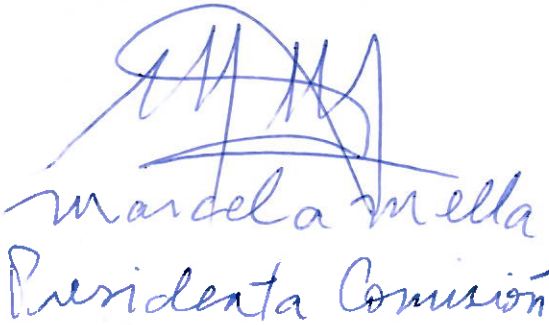 Marcela Mella
Presidenta Comisión